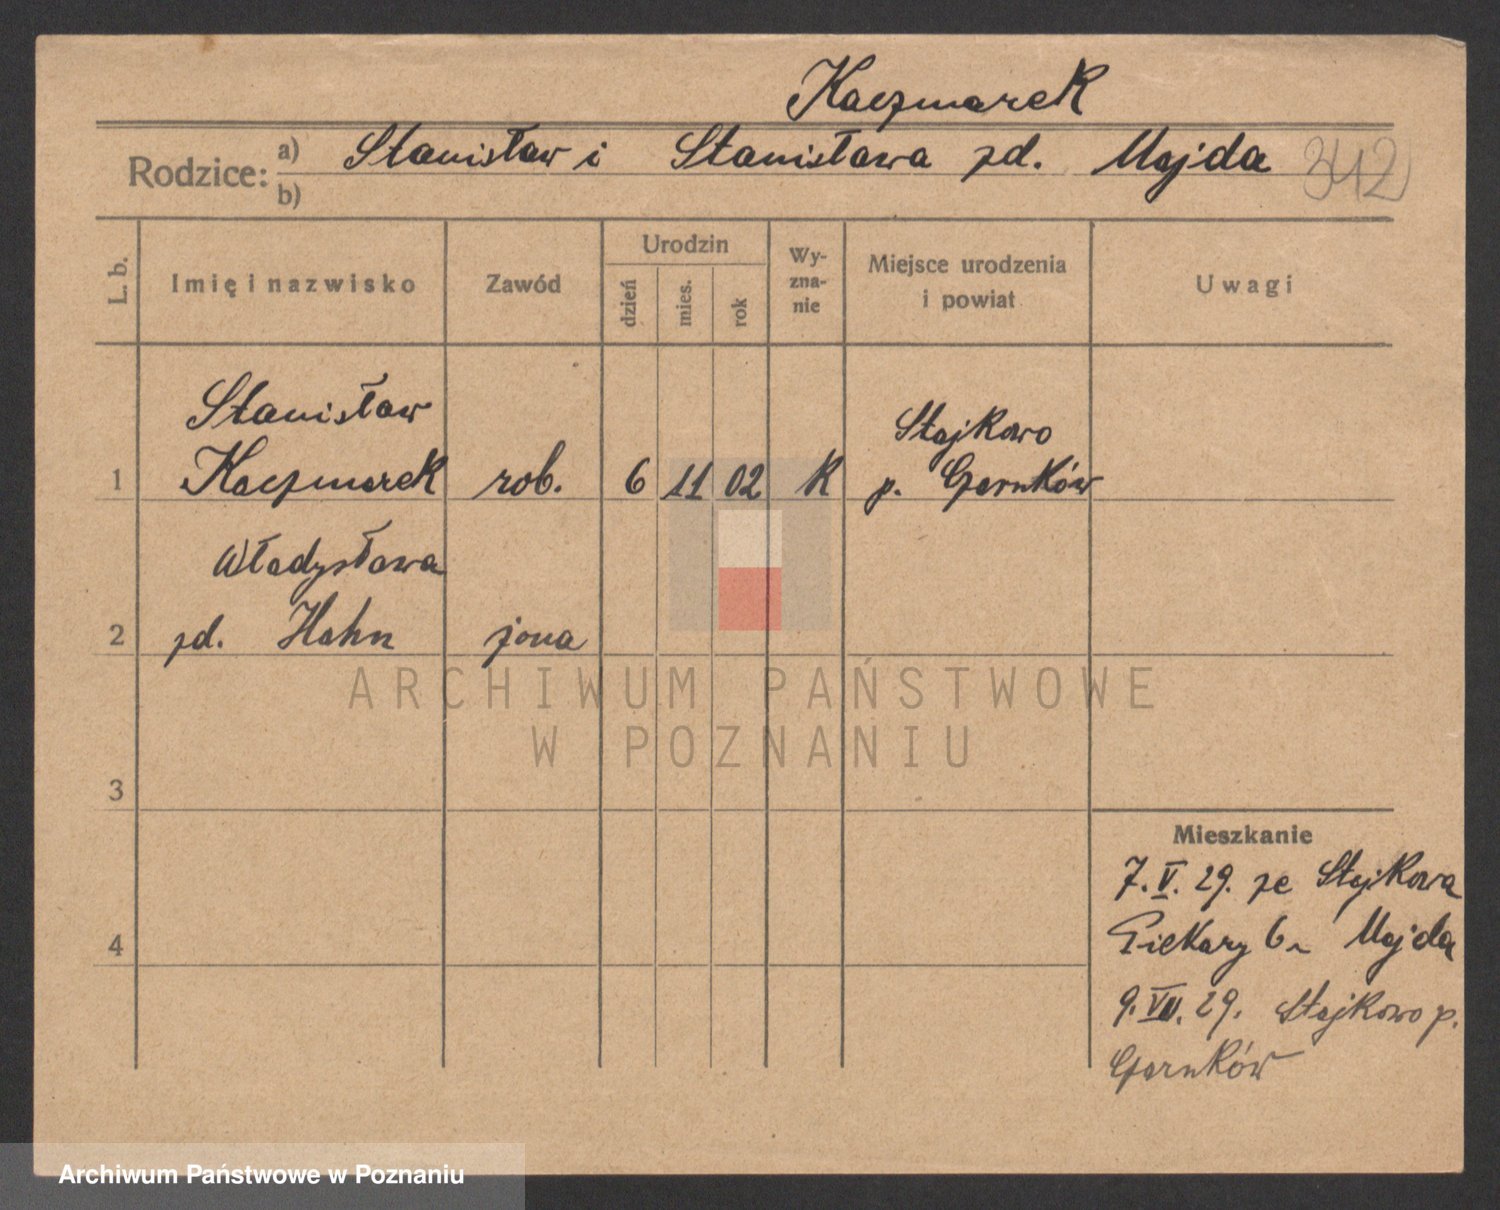 Kaczmarek
Rodzice: a) Stanisław i Stanisława zd. Majda 342
b)
L. b. Imię i nazwisko Zawód Urodzin dzień mies. rok Wy-zna-nie Miejsce urodzenia i powiat Uwagi
Stanisław
Stajkowo
1 Kaczmarek rob. 6 11 02 K p. Czarnków
Władysława
2 zd. Hahn żona
ARCHIWUM PAŃSTWOWE
W POZNANIU
3
Mieszkanie
7.V.29. ze Stajkowa
4 Piekary 6 Majda
9.VII.29. Stajkowo p.
Czarnków
Archiwum Państwowe w Poznaniu